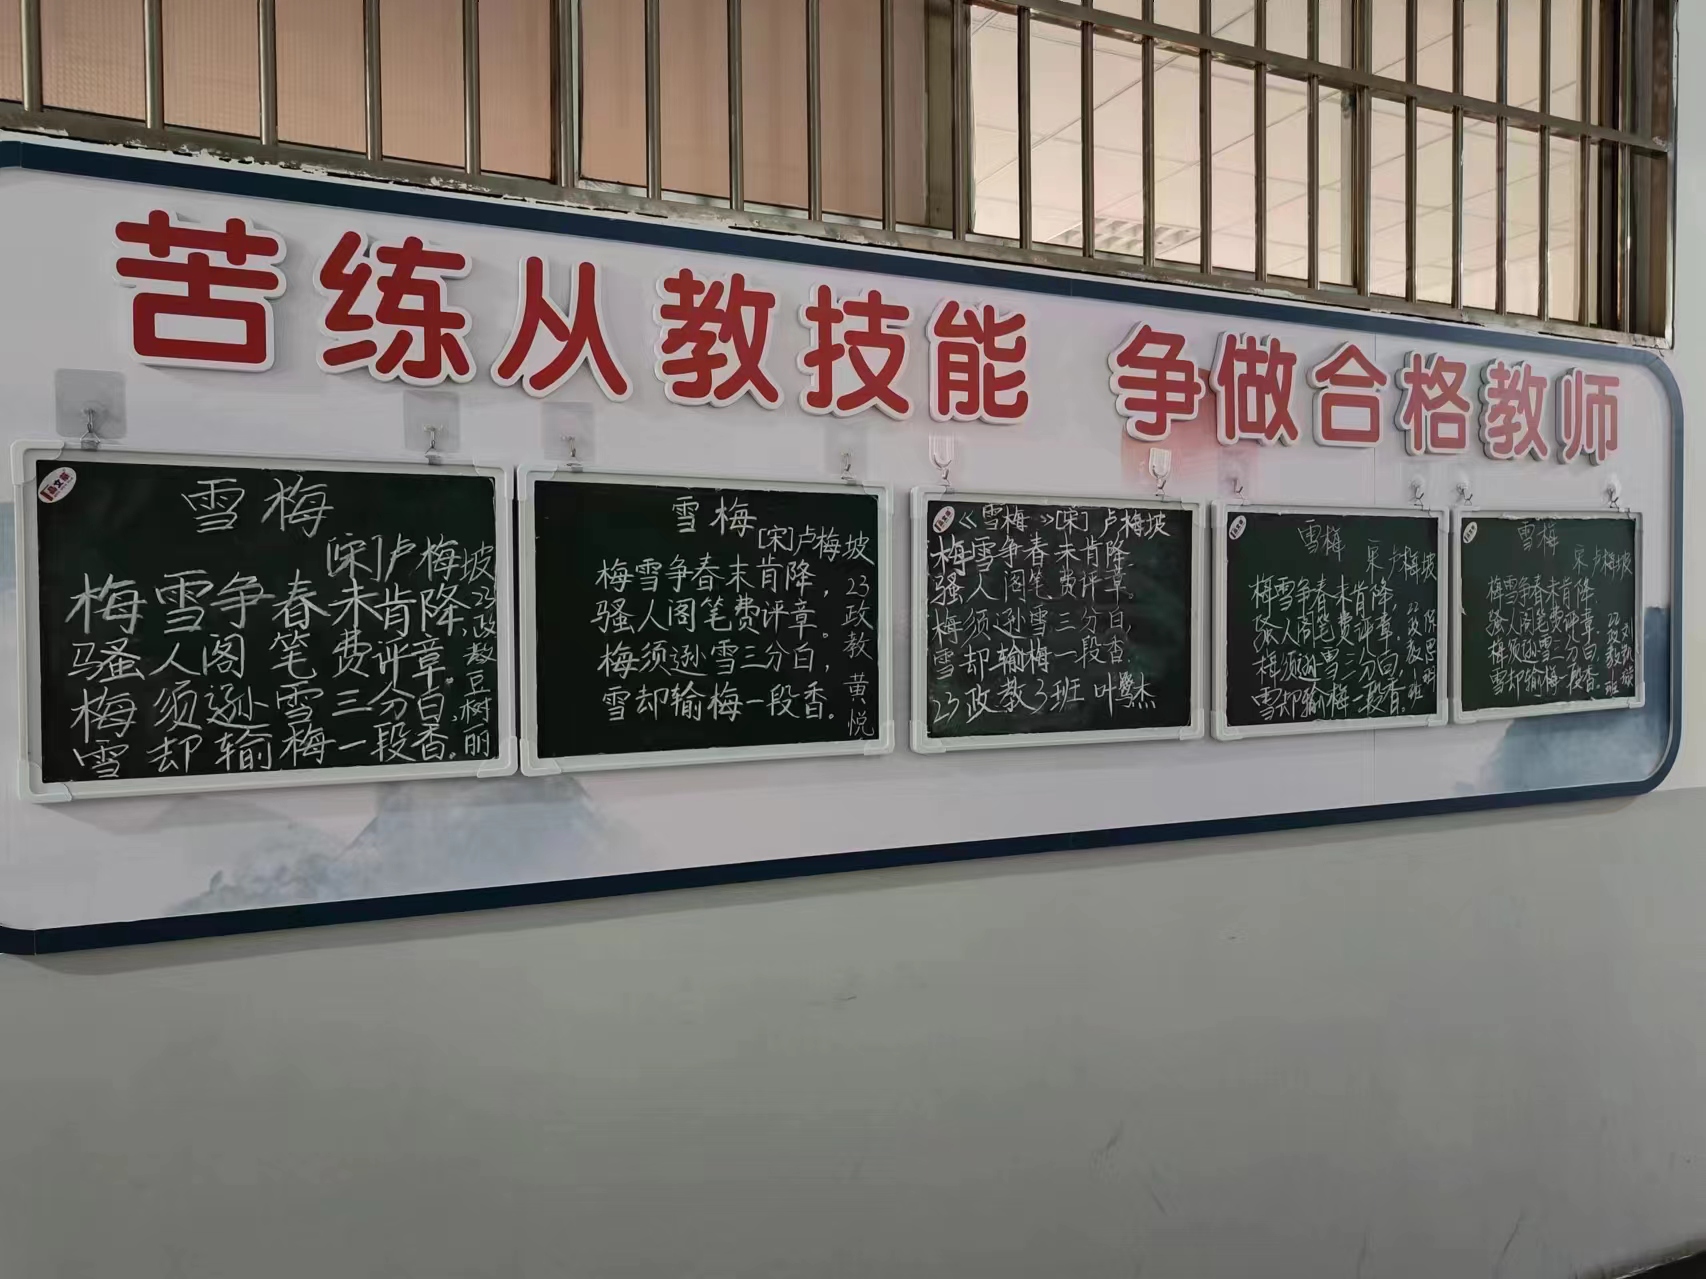 苦练从教技能 争做合格教师
雪梅
[宋]卢梅坡
梅雪争春未肯降,
骚人阁笔费评章。
梅须逊雪三分白,
雪却输梅一段香。
23政教豆树丽
雪梅
[宋]卢梅坡
梅雪争春未肯降,
骚人阁笔费评章。
梅须逊雪三分白,
雪却输梅一段香。
23政教黄悦
《雪梅》[宋]卢梅坡
梅雪争春未肯降
骚人阁笔费评章。
梅须逊雪三分白,
雪却输梅一段香。
23政教3班 叶鹭杰
雪梅
宋 卢梅坡
梅雪争春未肯降,
骚人阁笔费评章,
梅须逊雪三分白,
雪却输梅一段香。
雪梅
宋 卢梅坡
梅雪争春未肯降
骚人阁笔费评章。
梅须逊雪三分白,
雪却输梅一段香。